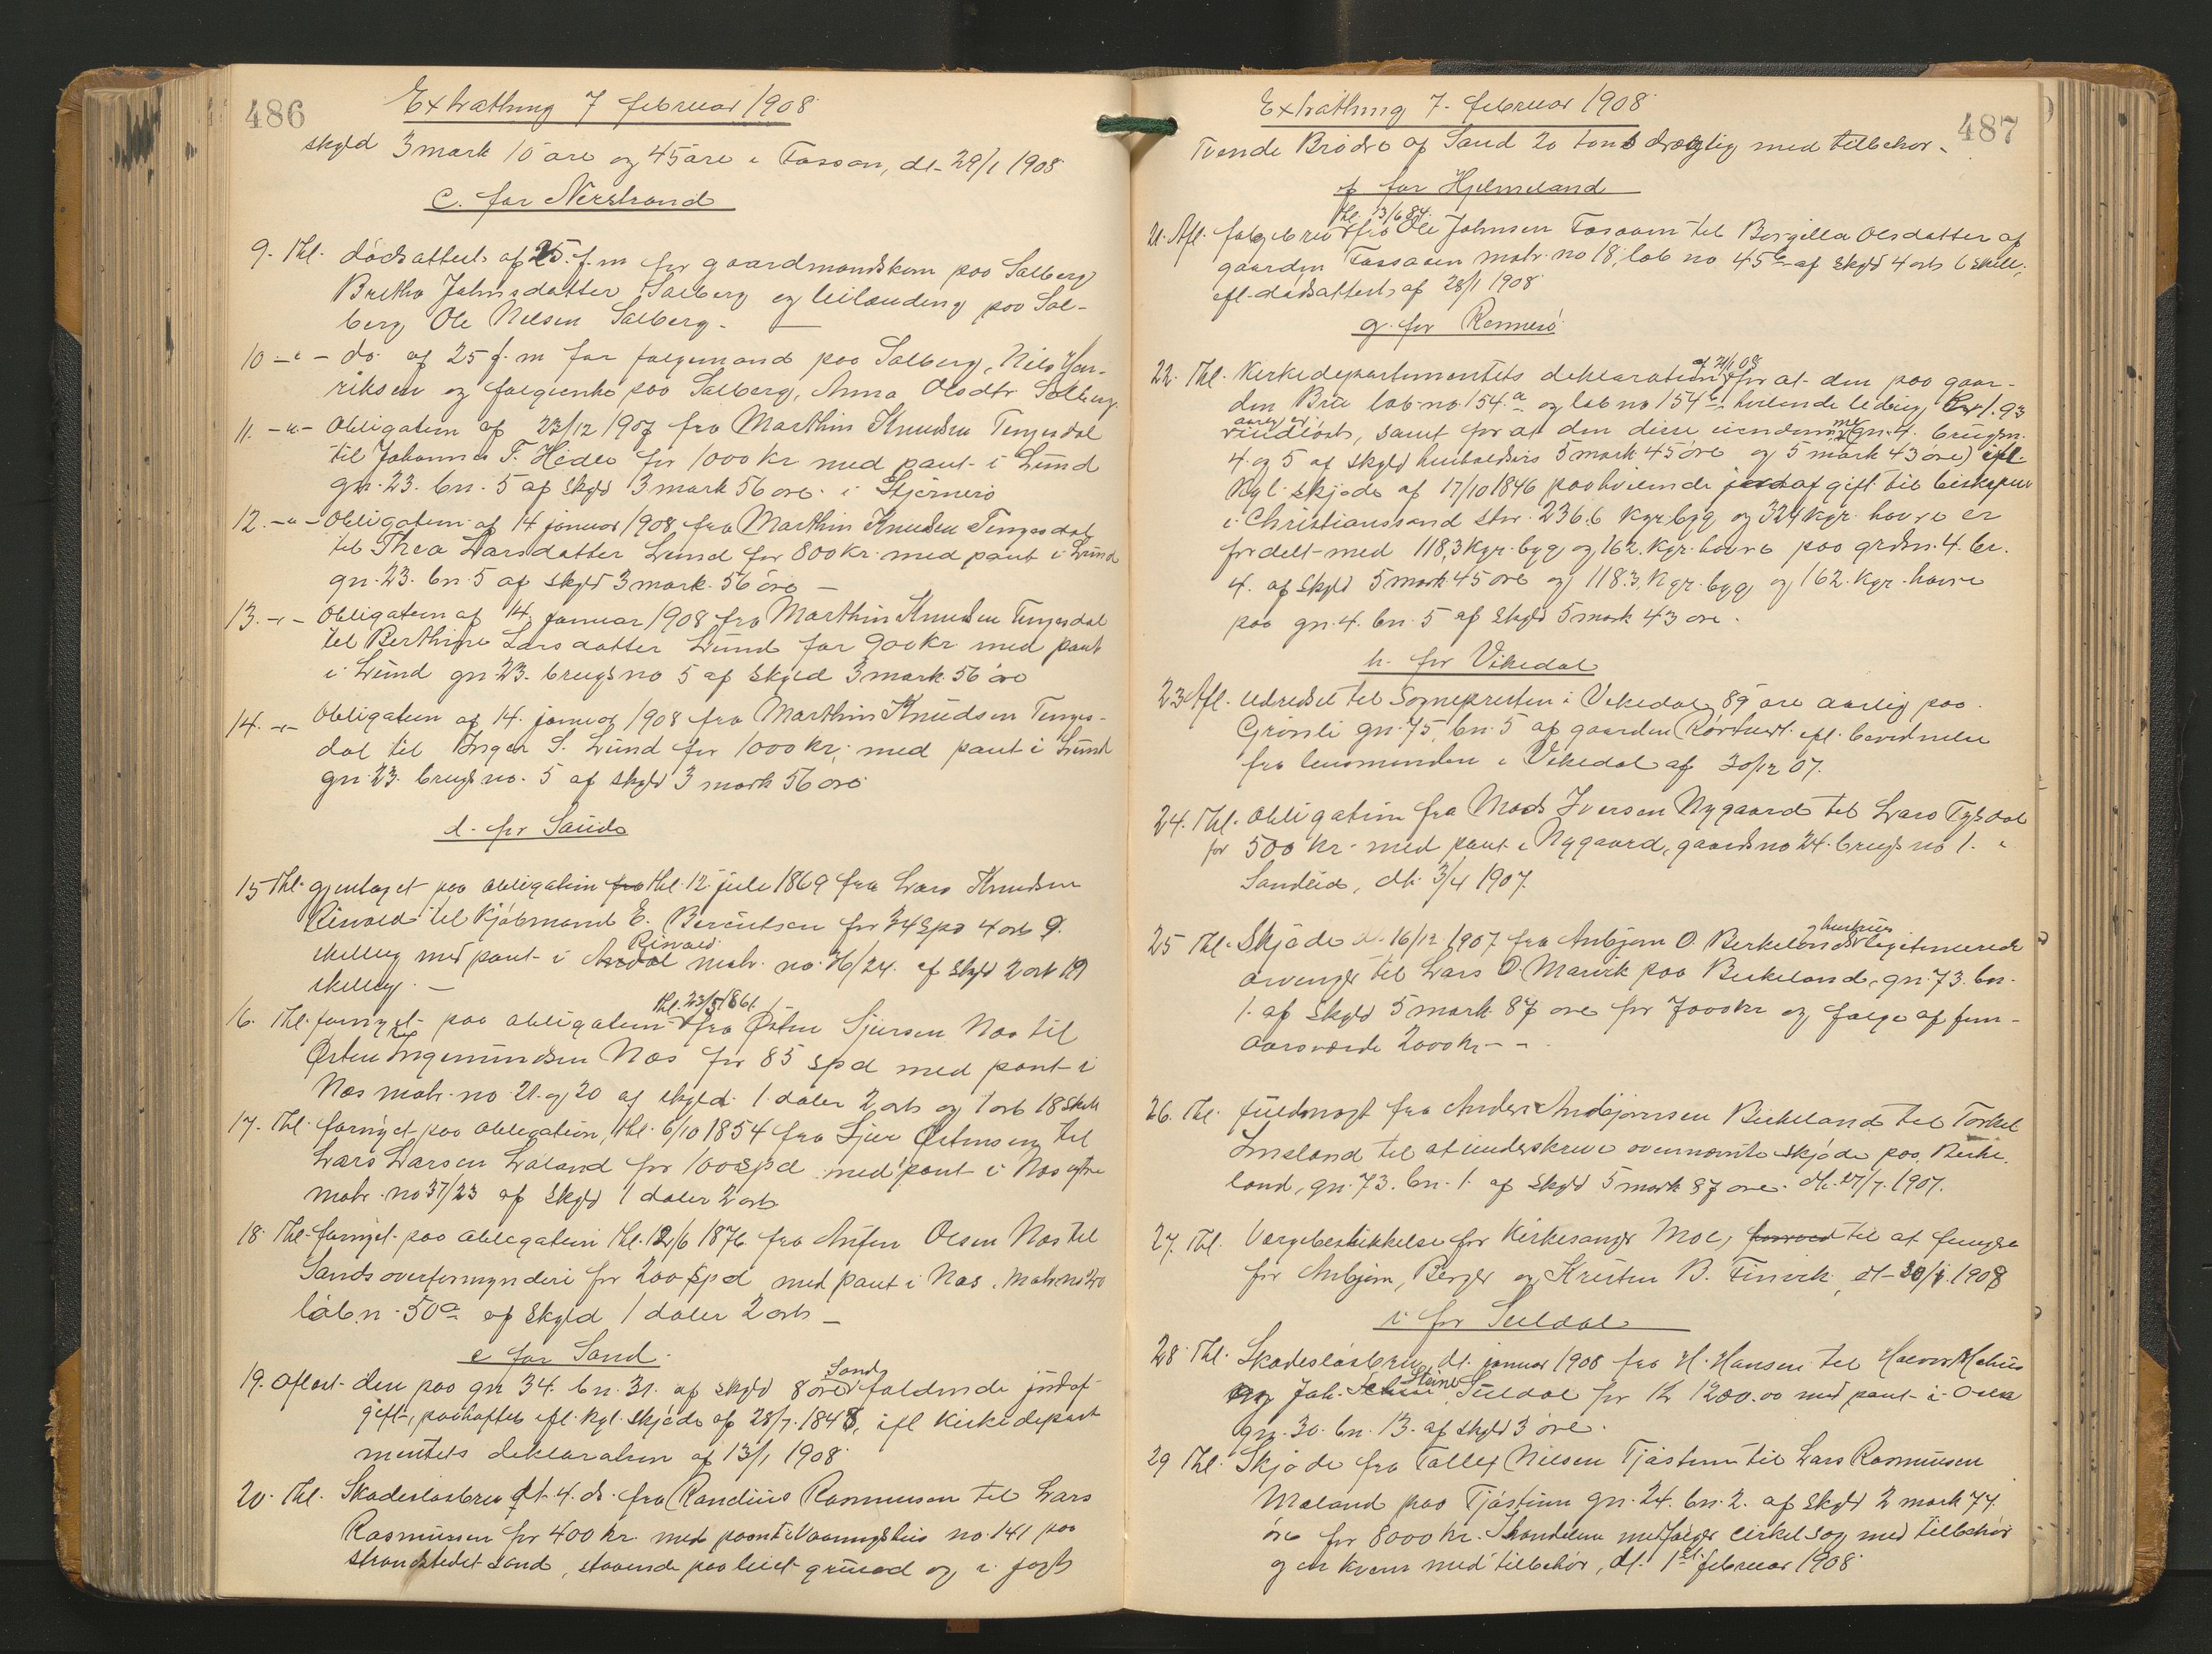 486
Extrathing 7 februar 1908
skyld 3 mark 10 øre og 45 øre i Fossan, dt. 29/1 1908
c. for Nerstrand
9. Thl. dödsattest af 25. f.m for gaardmandskone paa Salberg
Bretha Johnsdatter Salberg og leilænding paa Sal-
berg Ole Nilsen Salberg.
10 -"- do. af 25 f.m for følgemand paa Salberg, Nils Hen-
riksen og følgeenke paa Salberg, Anna Olsdtr Salberg.
11. -"- Obligation af 23/12 1907 fra Marthin Knudsen Tengesdal
til Johanna T. Hidle for 1000 Kr med pant i Lund
gn. 23. bn. 5 af skyld 3 mark 56 øre i Stjernerö
12. -"- Obligation af 14 januar 1908 fra Marthin Knudsen Tengesdal
til Thea Larsdatter Lund for 800 kr. med pant i Lund
gn. 23. bn. 5 af skyld 3 mark. 56 öre —
13. -"- Obligation af 14. januar 1908 fra Marthin Knudsen Tengesdal
til Berthine Larsdatter Lund for 900 kr med pant
i Lund gn 23. brugsno 5 af skyld 3 mark 56 öre
14. -"- Obligation af 14. januar 1908 fra Marthin Knudsen Tenges-
dal til Inger S. Lund for 1000 kr, med pant i Lund
gn 23. brugsno. 5 af skyld 3 mark 56 øre
d. for Saude
15 Thl. gjentaget paa obligation fra thl. 12 juli 1869 fra Lars Knudsen
Rivold til Kjöbmand E. Berentsen for 34 Spd 4 ort 9.
Rivold
skilling med pant i matr. no. 76/24. af skyld 2 ort 19
skilling. —
thl. 23/5 1861.
16. Thl. fornyet paa obligation fra Østen Sjursen Næs til
Østen Ingemundsen Næs for 85 spd med pant i
Næs matr. no 21. og 20 af skyld 1 daler 2 ort og 1 ort 18 skill
17. Thl. fornyet paa obligation, thl. 6/10 1854 fra Sjur Østensen til
Lars Larsen Løland for 100 spd med pant i Næs
matr. no 37/23 af skyld 1 daler 2 ort
18. Thl. fornyet paa obligation thl. 12/6 1876 fra Olsen Næs til
Sands overformynderi for 200 Spd med pant i Næs. matr. no 20
löbn. 50a af skyld 1 daler 2 ort —
e for Sand.
Sands
19. Aflæst den paa gn 34. bn. 31. af skyld 8 øre faldende jordaf-
gift, paaheftet ifl. kgl. skjöde af 28/7. 1848, ifl kirkedepart
mentets deklaration af 13/1 1908
20. Thl. Skadeslösbrev dt. 4. ds. fra Randius Rasmussen til Lars
Rasmussen for 400 kr. med pant i Vaaningshus no. 141 paa
Strandstedet Sand, staaende paa leiet grund og i jagt
487
Extrathing 7. februar 1908
Tvende Brödre af Sand 20 tons drægtig med tilbehør.
f for Hjelmeland
thl. 13/6 84.
21. Afl. følgebrev fra Ole Johnsen Fosaaen til Borgilla Olsdatter af
gaarden Fossaaen matr. no 18, løb no 45b af skyld 4 ort 6 skill.
ifl. dödsattest af 28/1 1908
g. for Rennesö
af 21/1 08
22. Thl. Kirkedepartementets deklaration for at den paa gaar-
den Brue løb-no 154.a og løb no 154b hvilende leding, kr. 1.93
aarlig er
indløst, samt for at den disse eiendomme (gn. 4. brugsn.
4. og 5 af skyld henholdsvis 5 mark 45 öre og 5 mark 43 øre) ifl.
Kgl. skjøde af 17/10 1846 paahvilende jordafgift til bispen
i Christianssand stor. 236.6 kgr. byg og 324 kgr. havre er
fordelt med 118,3 kgr. byg og 162. kgr. havre paa grdn. 4. br.
4. af skyld 5 mark 45 øre og 118.3. kgr. byg og 162. kgr. havre
paa gn. 4. bn. 5 af skyld 5 mark 43 øre.
h. for Vikedal
23 Afl. Udredsel til Sognepresten i Vikedal 89 øre aarlig paa
Grönli gn. 75, bn. 5 af gaarden Rørtveit ifl. bevidnelse
fra lensmanden i Vikedal af 30/12 07.
24. Thl. Obligation fra Mads Iversen Nygaard til Lars Tysdal
for 500 kr. med pant i Nygaard, gaards no 24. brugs no 1. i
Sandeid, dt. 3/4 1907.
og hustrus
25 Thl. Skjøde dt. 16/12 1907 fra Anbjørn O. Berkelands legitimerede
arvinger til Lars O. Marvik paa Birkeland, gn. 73. bn.
1. af skyld 5 mark 87 øre for 7000 kr og følge af fem-
aarsværde 2000 kr. - -
26. Thl. fuldmagt fra Anders Anbjørnsen Birkeland til Torkel
Imsland til at underskrive overnævnte skjøde paa Birke
land, gn. 73. bn. 1. af skyld 5 mark 87 øre. dt. 27/7. 1907.
27. Thl. Værgebeskikkelse for Kirkesanger Moe, til at fungere
for Anbjørn, Berger og Kristen B. Finvik, dt. 30/1. 1908
i for Suldal
28 Thl. Skadeslösbrev dt. januar 1908 fra H. Hansen til
og Joh. Steine Suldal for kr 1200.00 med pant i
gn. 30. bn. 13. af skyld 3 öre.
29 Thl. Skjøde fra Tallef Nilsen Tjøstem til Lars Rasmussen
Møland paa Tjøstem gn. 24. bn. 2. af skyld 2 mark 74.
øre for 8000 kr. I handelen medfølger cirkelsag med tilbehør
og en kvern med tilbehör, dt. 1st februar 1908